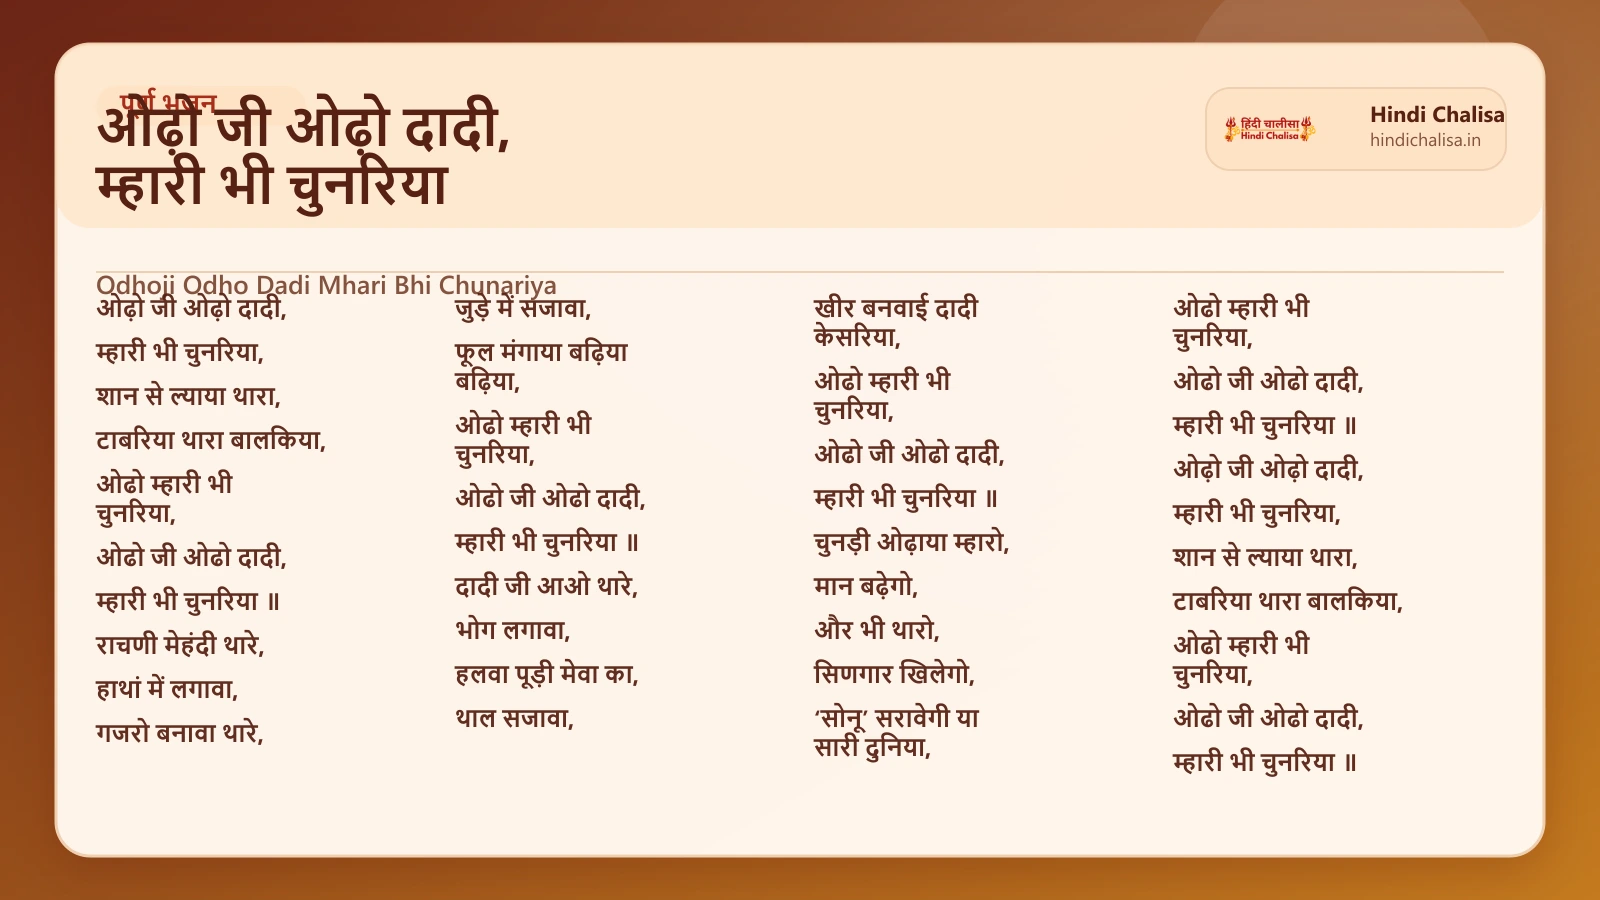 पूर्ण भजन
ओढ़ो जी ओढ़ो दादी,
म्हारी भी चुनरिया
हिंदी चालीसा
Hindi Chalisa
Hindi Chalisa
hindichalisa.in
Odhoji Odho Dadi Mhari Bhi Chunariya
ओढ़ो जी ओढ़ो दादी,
म्हारी भी चुनरिया,
शान से ल्याया थारा,
टाबरिया थारा बालकिया,
ओढो म्हारी भी
चुनरिया,
ओढो जी ओढो दादी,
म्हारी भी चुनरिया ॥
राचणी मेहंदी थारे,
हाथां में लगावा,
गजरो बनावा थारे,
जुड़े में सजावा,
फूल मंगाया बढ़िया
बढ़िया,
ओढो म्हारी भी
चुनरिया,
ओढो जी ओढो दादी,
म्हारी भी चुनरिया ॥
दादी जी आओ थारे,
भोग लगावा,
हलवा पूड़ी मेवा का,
थाल सजावा,
खीर बनवाई दादी
केसरिया,
ओढो म्हारी भी
चुनरिया,
ओढो जी ओढो दादी,
म्हारी भी चुनरिया ॥
चुनड़ी ओढ़ाया म्हारो,
मान बढ़ेगो,
और भी थारो,
सिणगार खिलेगो,
‘सोनू’ सरावेगी या
सारी दुनिया,
ओढो म्हारी भी
चुनरिया,
ओढो जी ओढो दादी,
म्हारी भी चुनरिया ॥
ओढ़ो जी ओढ़ो दादी,
म्हारी भी चुनरिया,
शान से ल्याया थारा,
टाबरिया थारा बालकिया,
ओढो म्हारी भी
चुनरिया,
ओढो जी ओढो दादी,
म्हारी भी चुनरिया ॥